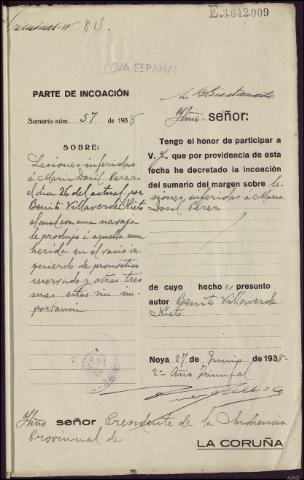 E.3642009
813
¡VIVA ESPAÑA!
PARTE DE INCOACIÓN
Sumario núm. 57 de 1938
SOBRE:
Lesiones inferidas
á María Dosil Perez
el día 26 del actual por
Benito Villaverde Nieto
el cual con una navaja
le produjo á aquella una
herida en el vacío iz-
quierdo de pronóstico
reservado y otras tres
mas estas sin im-
portancia
Ilmo. señor:
Tengo el honor de participar a
V. I. que por providencia de esta
fecha he decretado la incoación
del sumario del margen sobre le-
siones inferidas á María
Dosil Perez
de cuyo hecho es presunto
autor Benito Villaverde
Nieto
Noya 27 de Junio de 1938
2º Año Triunfal
Ilmo señor Presidente de la Audiencia
Provincial de LA CORUÑA